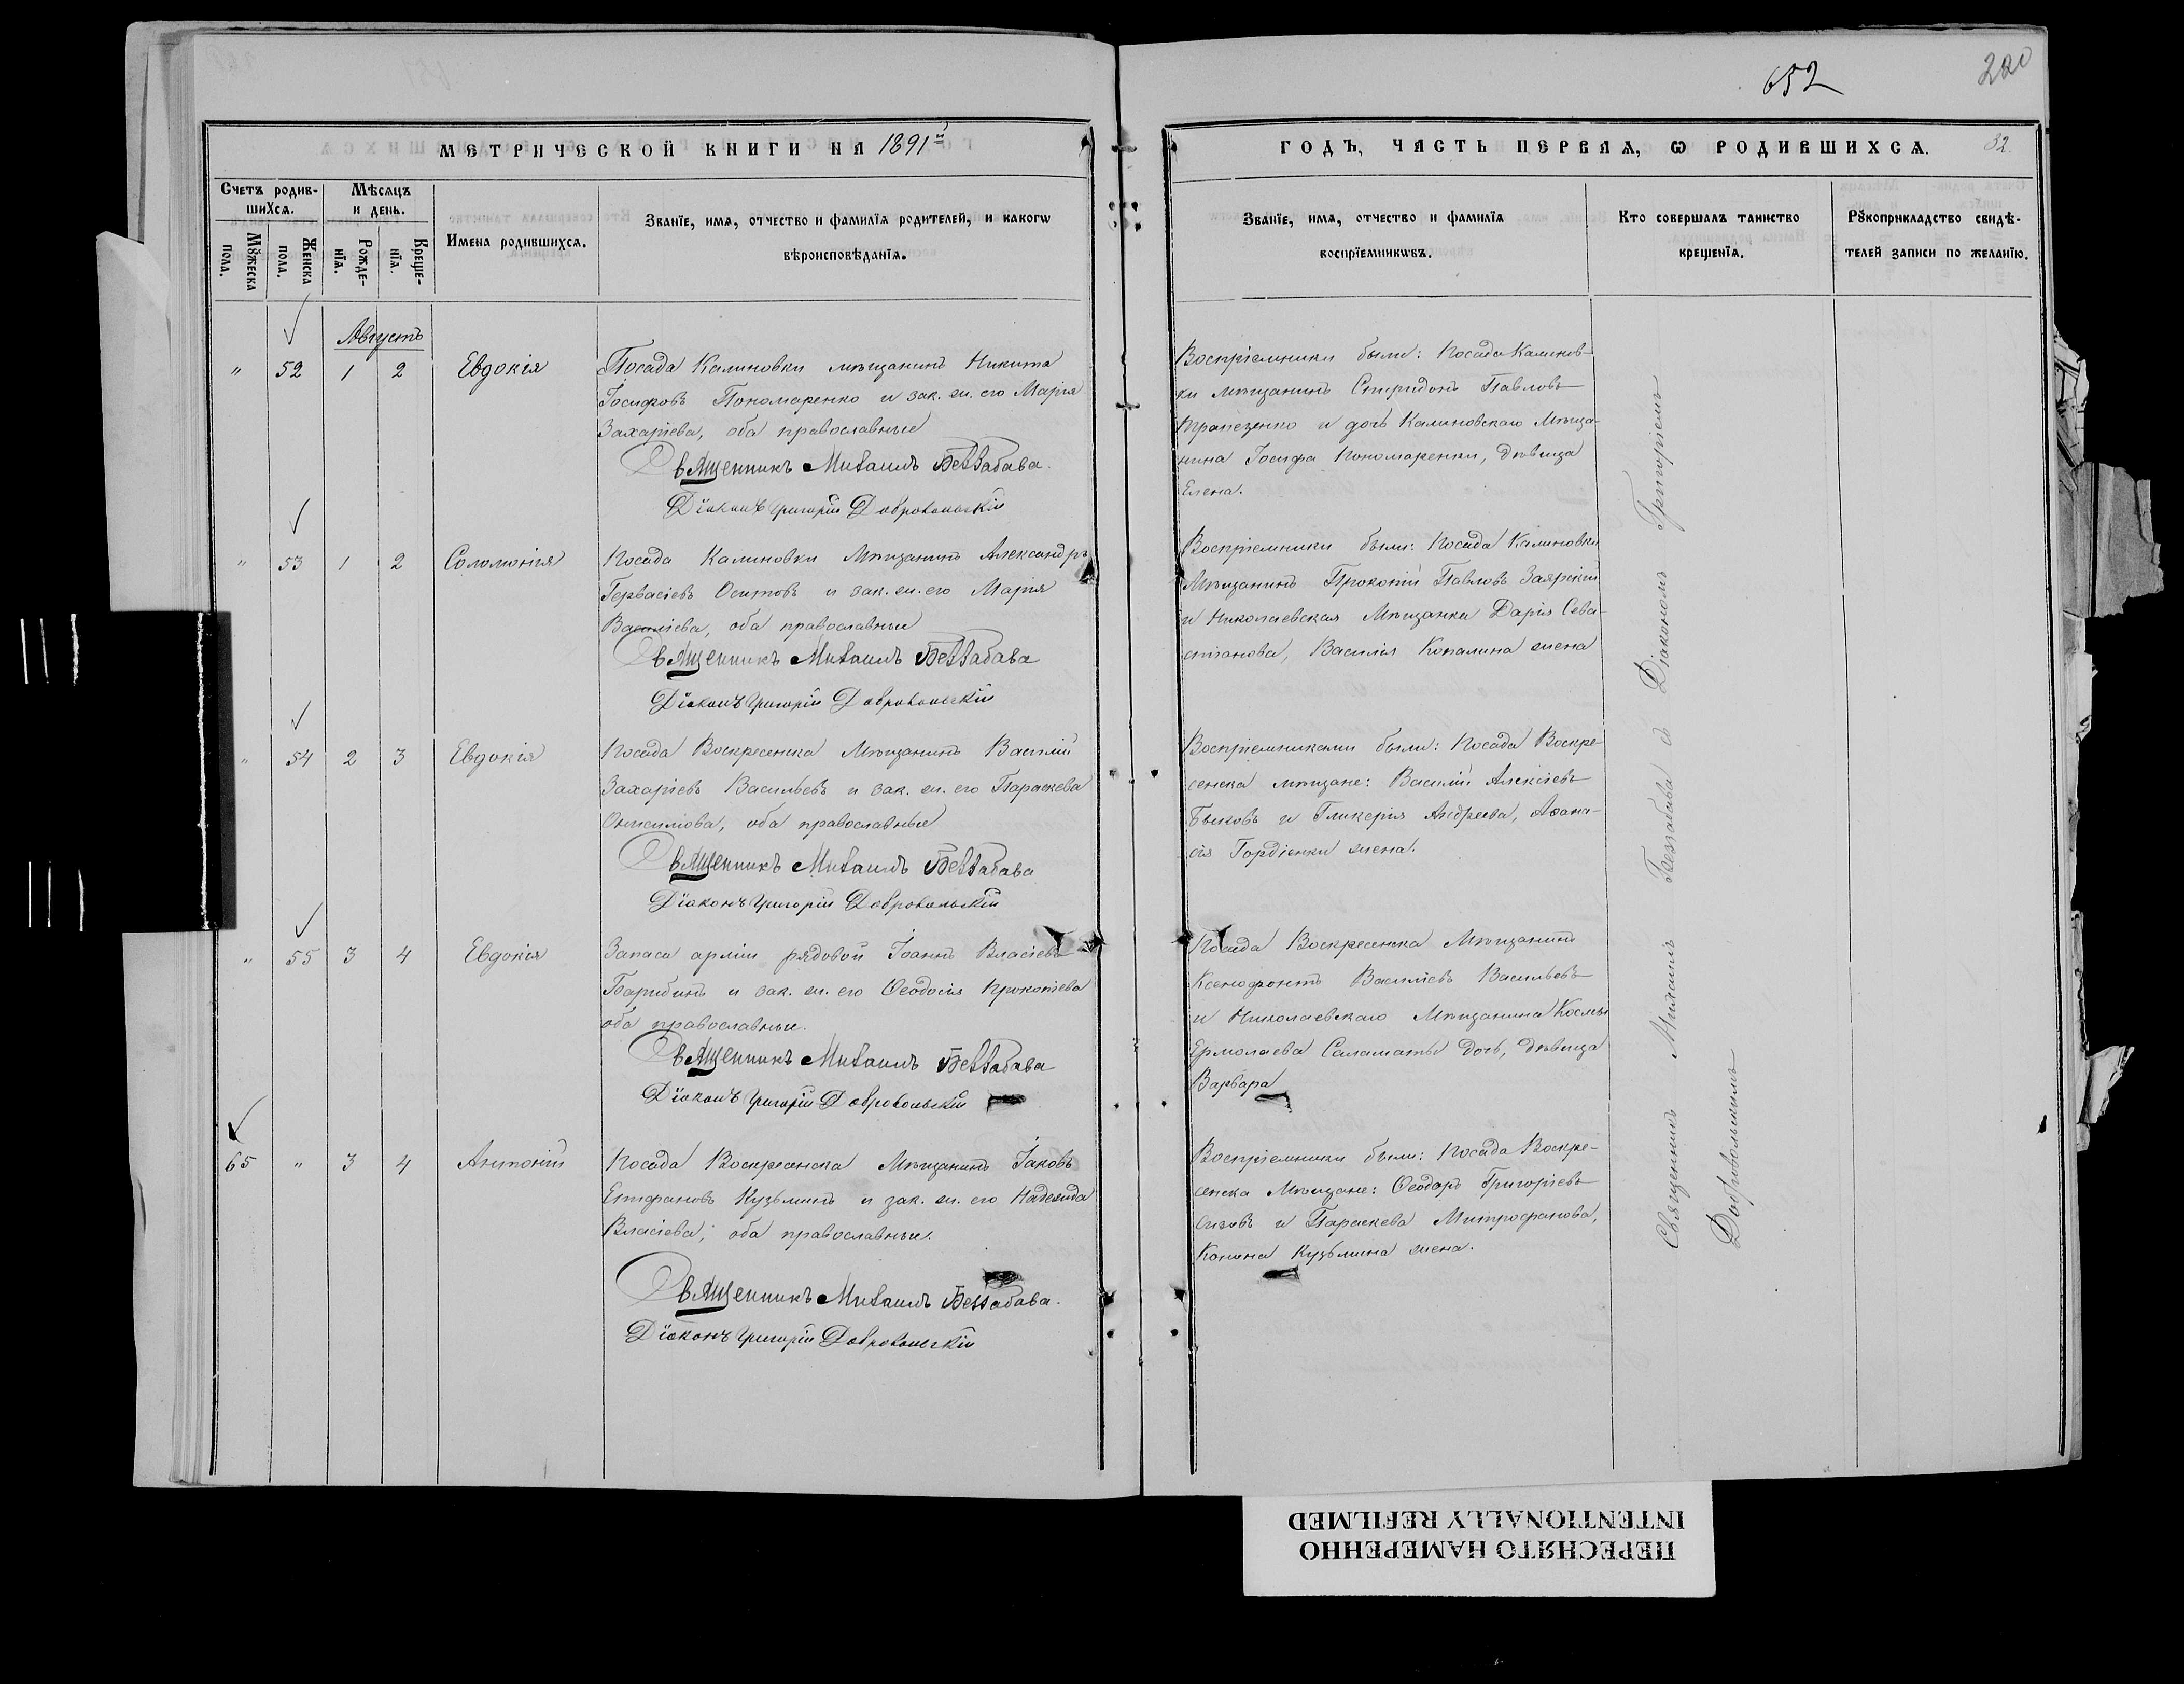 652
200
МЕТРИЧЕСКОЙ КНИГИ НА 1891й
ГОДЪ, ЧАСТЬ ПЕРВАЯ, Ѡ РОДИВШИХСѦ.
32.
Счетъ родив-
шиХсѧ.
Мѣсѧцъ
и день.
Мꙋжеска
пола.
Женска
пола.
Рожде-
нїѧ.
Креще-
нїѧ.
Имена родившихсѧ.
Званїе, имѧ, отчество и фамилїѧ родителей, и какогѡ
вѣроисповѣданїѧ.
Званїе, имѧ, отчество и фамилїѧ
воспрїемникѡвъ.
Кто совершалъ таинство
крещенїѧ.
Рꙋкоприкладство свидѣ-
телей записи по желанїю.
Августъ
" 52 1 2 Евдокія
Посада Калиновки мѣщанинъ Никита
Іосифовъ Пономаренко и зак. ж. его Марія
Захаріева, оба православные
Священникъ Михаилъ Беззабава.
Діаконъ Григорій Добровольскій
Воспріемники были: Посада Калинов-
ки мѣщанинъ Спиридонъ Павловъ
Трапезенко и дочь Калиновскаго Мѣща-
нина Іосифа Пономаренки, дѣвица
Елена.
" 53 1 2 Соломонія
Посада Калиновки Мѣщанинъ Александръ
Гервасіевъ Осиповъ и зак. ж. его Марія
Василіева, оба православные
Священникъ Михаилъ Беззабава
Діаконъ Григорій Добровольскій
Воспріемники были: Посада Калиновки
Мѣщанинъ Прокопій Павловъ Заярскій
и Николаевская Мѣщанка Дарія Сева-
стіанова, Василія Копалина жена
" 54 2 3 Евдокія
Посада Воскресенска Мѣщанинъ Василій
Захаріевъ Васильевъ и зак. ж. его Параскева
Онисимова, оба православные
Священникъ Михаилъ Беззабава
Діаконъ Григорій Добровольскій
Воспріемниками были: Посада Воскре-
сенска мѣщане: Василій Алексіевъ
Быковъ и Гликерія Андреева, Аѳана-
сія Гордіенки жена.
" 55 3 4 Евдокія
Запаса арміи рядовой Іоаннъ Власіевъ
Барибинъ и зак. ж. его Ѳеодосія Прокопіева
оба православные.
Священникъ Михаилъ Беззабава
Діаконъ Григорій Добровольскій
Посада Воскресенска Мѣщанинъ
Ксенофонтъ Василіевъ Васильевъ
и Николаевскаго Мѣщанина Космы
Ермолаева Саламаты дочь, дѣвица
Варвара
65 " 3 4 Антоній
Посада Воскресенска Мѣщанинъ Іаковъ
Епифановъ Кузьминъ и зак. ж. его Надежда
Власіева, оба православные.
Священникъ Михаилъ Беззабава.
Діаконъ Григорій Добровольскій
Воспріемники были: Посада Воскре-
сенска Мѣщане: Ѳеодоръ Григоріевъ
и Параскева Митрофанова,
Конона Кузьмина жена.
Священникъ Михаилъ Беззабава съ Діакономъ Григоріемъ
Добровольскимъ
ПЕРЕСНЯТО НАМЕРЕННО
INTENTIONALLY REFILMED